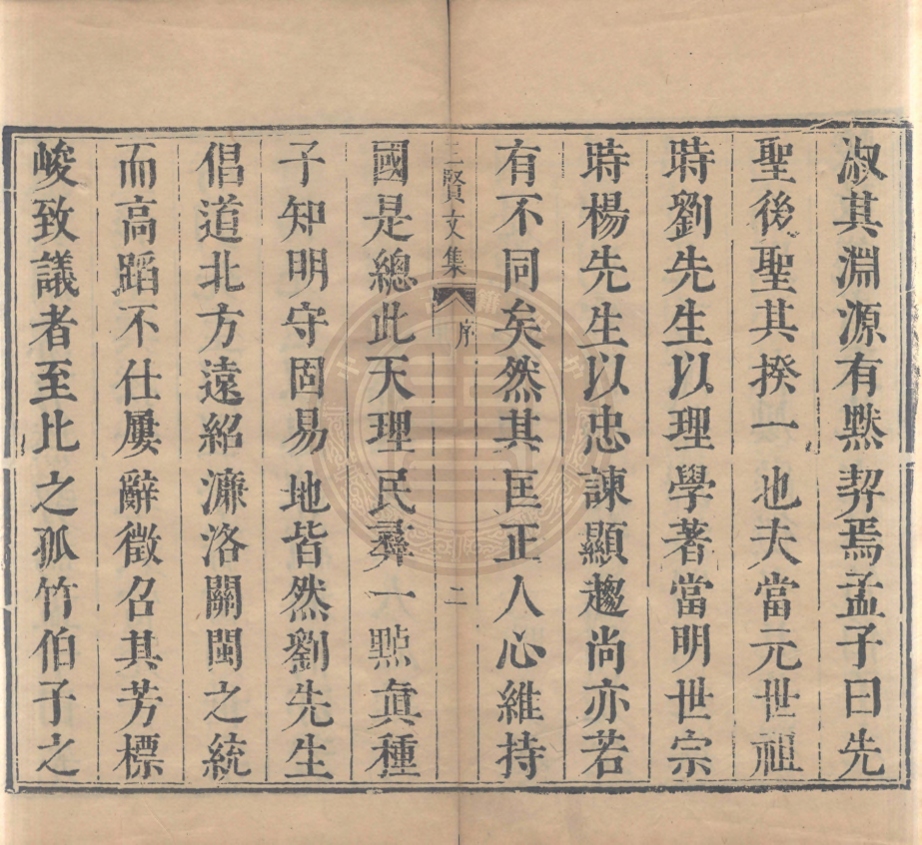 淑其淵源有黙契焉孟子曰先
聖後聖其揆一也夫當元世祖
時劉先生以理學著當明世宗
時楊先生以忠諫顯趨尚亦若
有不同矣然其匡正人心維持
三賢文集 序 二
國是總此天理民彞一點眞種
子知明守固易地皆然劉先生
倡道北方遠紹濂洛關閩之統
而高蹈不仕屢辭徵召其芳標
峻致議者至比之孤竹伯子之